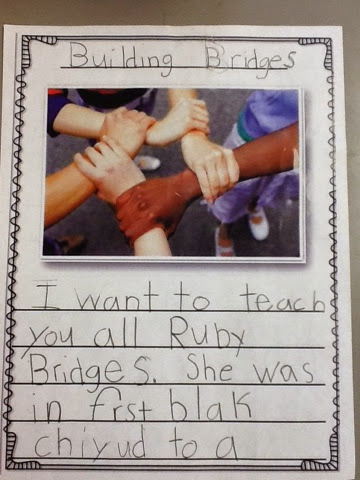 Building Bridges
I want to teach
you all Ruby
Bridges. She was
in frst blak
chiyud to a